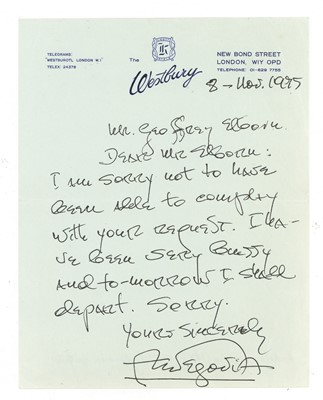 TELEGRAMS:
"WESTBUROTL LONDON W.1"
TELEX: 24378
The Westbury
NEW BOND STREET
LONDON, W1Y 0PD
TELEPHONE: 01-629 7755
8-Nov. 1975
Mr. Geoffrey Elborn.
Dear Mr Elborn:
I am sorry not to have
been able to comply
with your request. I ha-
ve been very bussy
and to-morrow I shall
depart. Sorry.
Yours sincerely